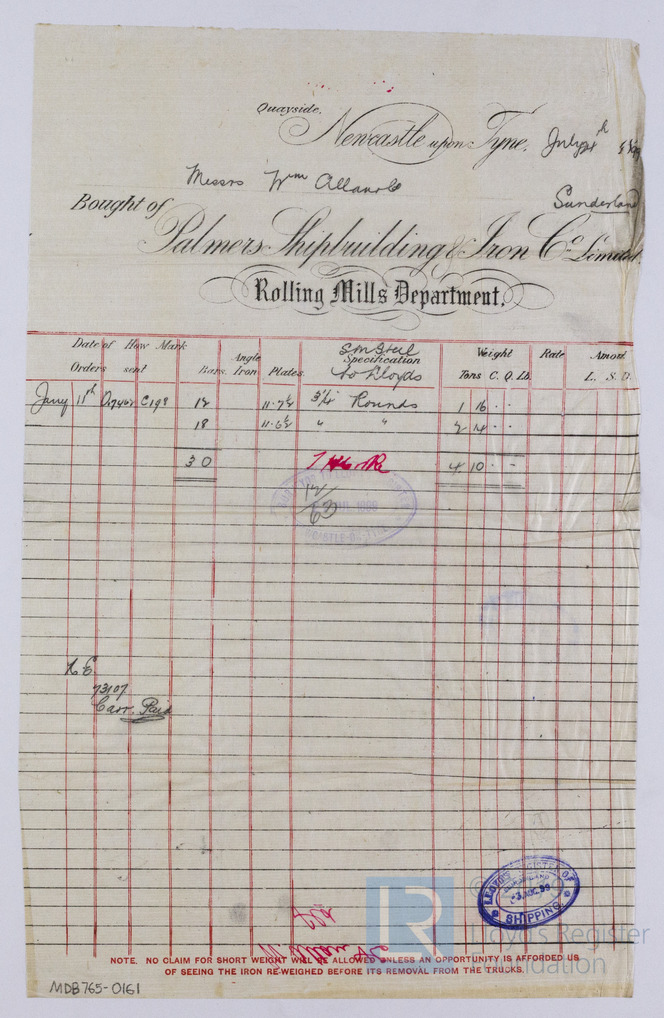 Quayside,
Newcastle upon Tyne, July
Messrs Wm Allan & Co
Sunderland
Bought of
Palmers Shipbuilding & Iron Co. Limited.
Rolling Mills Department.
Date of Orders How sent Mark Bars. Angle Iron Plates. Specification Weight Tons C. Q. Lb. Rate Amont L. S. D.
S M Steel
to Lloyds
Jany 11th C198 12 11.7½ 3¼ Rounds 1 16 . .
18 11.6½ " " 2 14 . .
30 4 10 . .
12/63
N E
73107
Carr. Paid
LLOYD'S REGISTER OF SHIPPING.
SUNDERLAND
AUG. 99
LR
Lloyd's Register
Foundation
NOTE. NO CLAIM FOR SHORT WEIGHT WILL BE ALLOWED UNLESS AN OPPORTUNITY IS AFFORDED US
OF SEEING THE IRON RE-WEIGHED BEFORE ITS REMOVAL FROM THE TRUCKS.
MDB765-0161